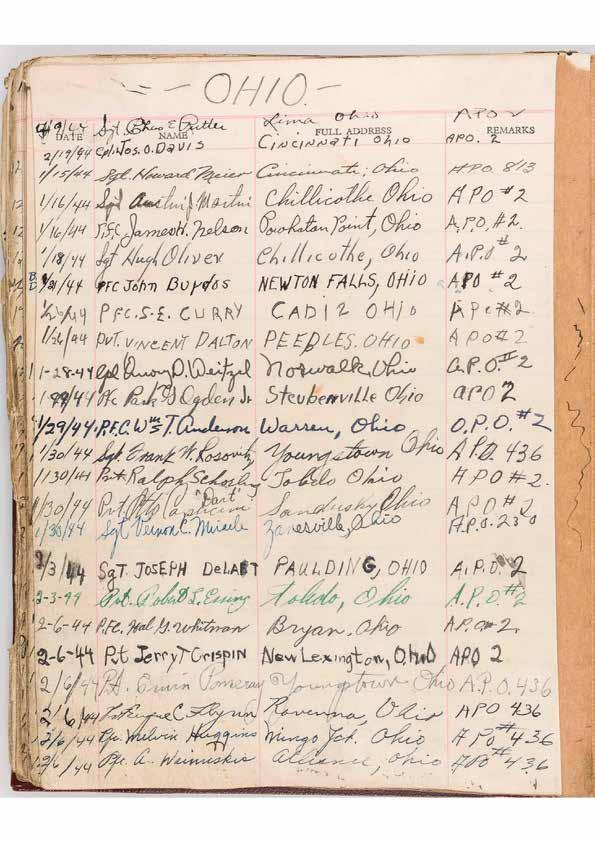 - OHIO -
DATE NAME FULL ADDRESS REMARKS
9/44 Sgt. Chas E Lima Ohio APO 2
2/19/44 Cpl. Jos. O. DAVIS CINCINNATI OHIO APO. 2
1/15/44 Sgt. Howard Meier Cincinnati, Ohio APO 813
1/16/44 Sgt Austin Martin Chillicothe Ohio APO #2
1/16/44 P.F.C. James H. Nelson Powhatan Point, Ohio A.P.O. #2.
1/18/44 Sgt Hugh Oliver Chillicothe, Ohio A.P.O. #2
1/21/44 PFC John Burdos NEWTON FALLS, OHIO APO #2
PFC. S.E. CURRY CADIZ OHIO APO #2
1/26/44 PVT. VINCENT DALTON PEEBLES. OHIO APO #2
1-28-44 Cpl D. Weitzel Norwalk, Ohio A.P.O. #2
Pfc Park G Ogden Jr Steubenville Ohio APO 2
1/29/44 P.F.C. Wm T. Anderson Warren, Ohio A.P.O. #2
1/30/44 Sgt. Frank W. Youngstown Ohio A.P.O. 436
1/30/44 Pvt Ralph Toledo Ohio APO #2.
1/30/44 Pvt. "Dart" Sandusky Ohio A.P.O. #2
1/30/44 Sgt Vernon C. Zanesville, Ohio A.P.O. 230
2/3/44 SGT. JOSEPH DELAET PAULDING, OHIO A.P.O. 2
2-3-44 Pvt. Robert L. Essing Toledo, Ohio A.P.O. #2
2-6-44 P.F.C. Hal G. Whitman Bryan. Ohio A.P.O. #2
2-6-44 Pvt Jerry T Crispin New Lexington, Ohio APO 2
2/6/44 Pvt. Pomeray Youngstown Ohio A.P.O. 436
2/6/44 C Flynn Ravenna, Ohio APO 436
2/6/44 Pfc. Melvin Huggins Mingo Jct. Ohio APO #436
2/6/44 Pfc. A. Alliance, Ohio APO #436